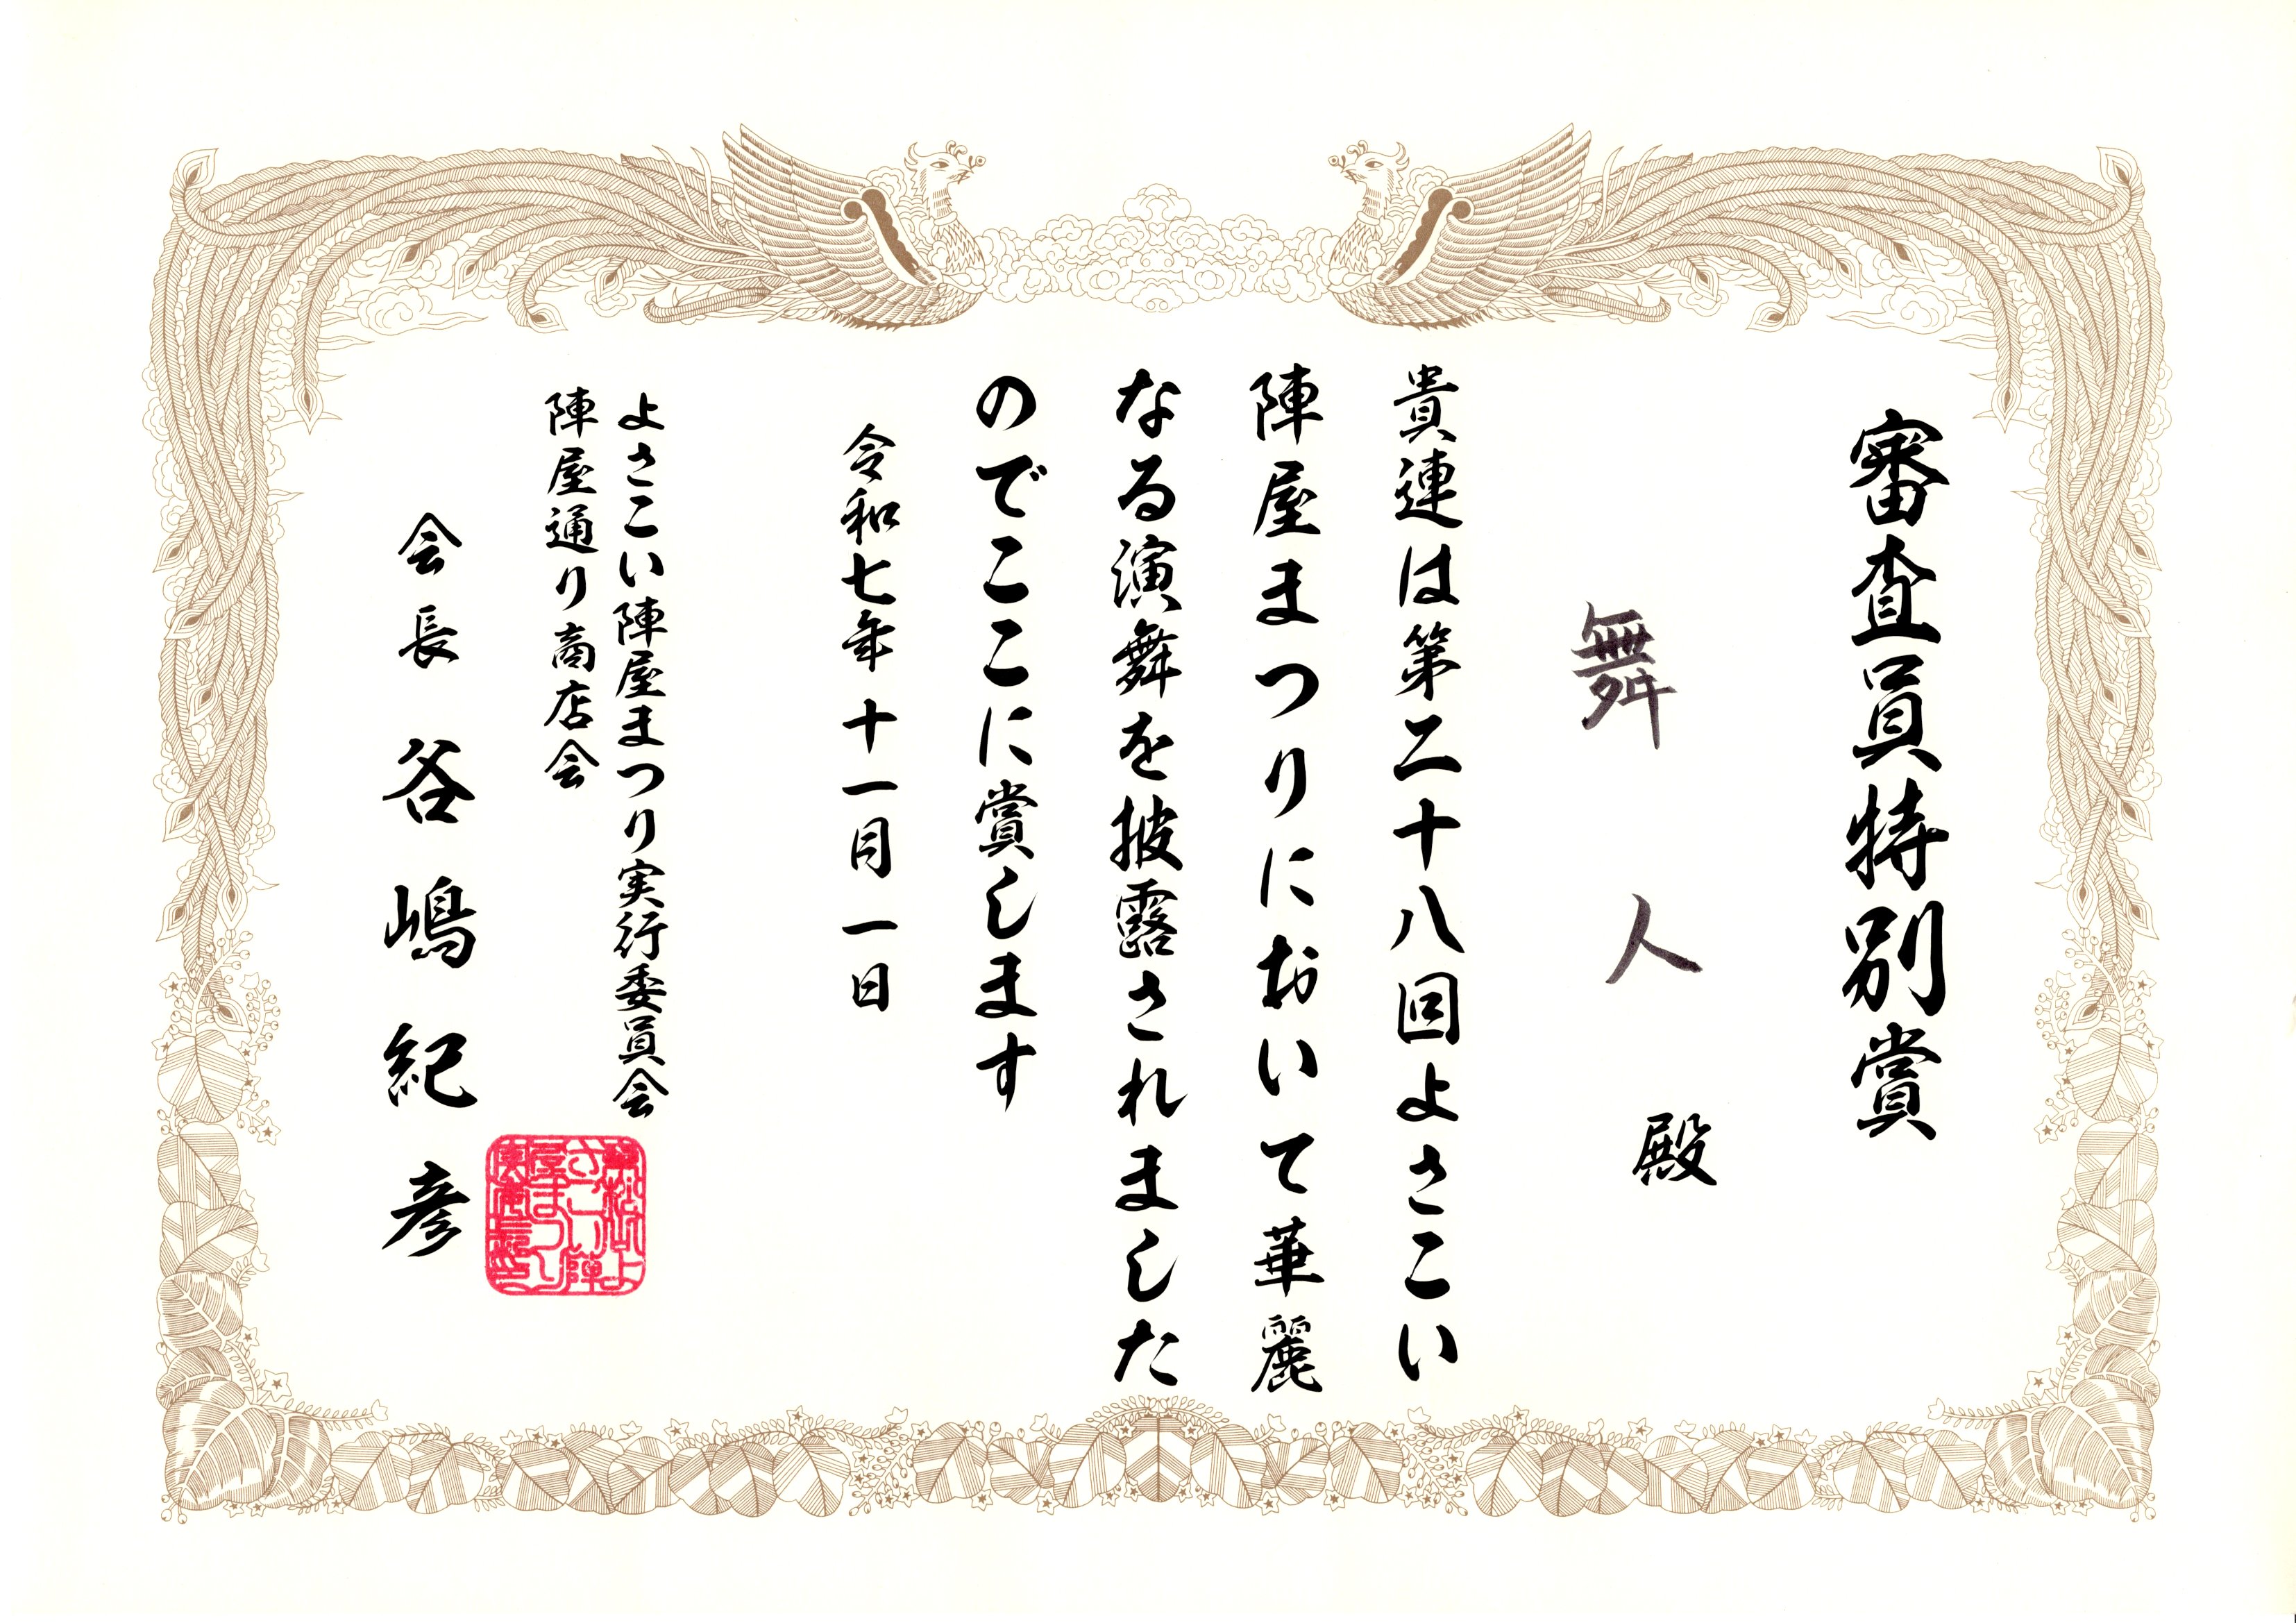 審査員特別賞
舞人 殿
貴連は第二十八回よさこい
陣屋まつりにおいて華麗
なる演舞を披露されました
のでここに賞します
令和七年十一月一日
よさこい陣屋まつり実行委員会
陣屋通り商店会
会長 谷嶋紀彦